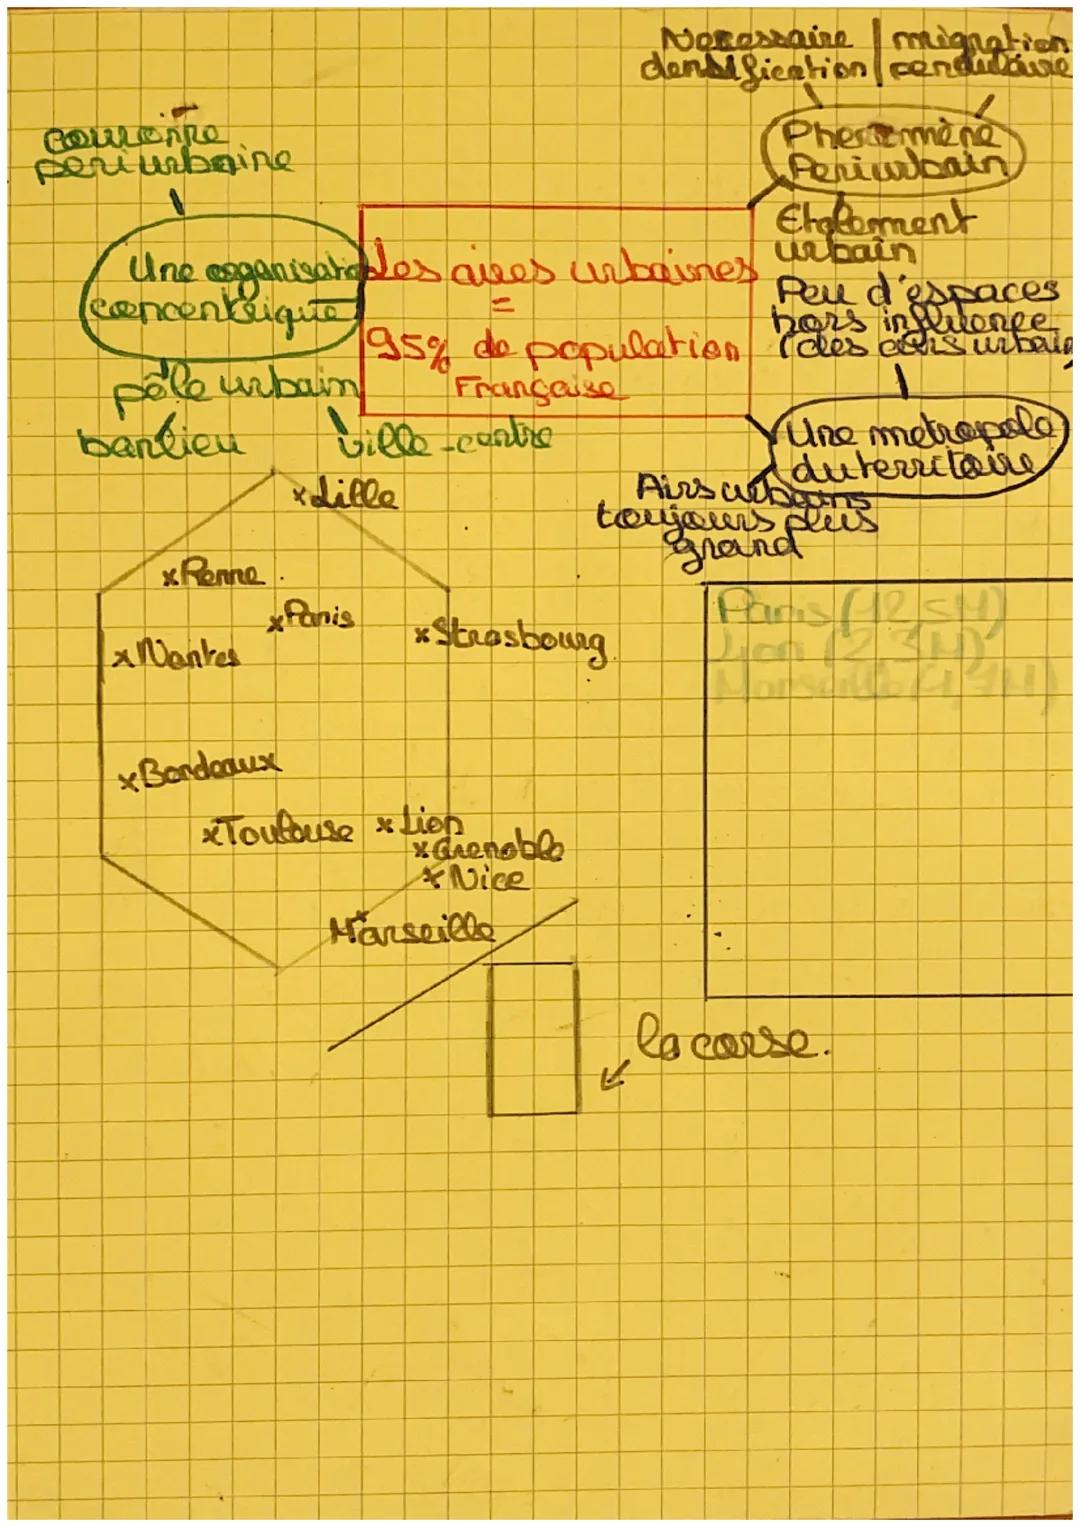 Necessaire | migration
densification | pendulaire
couronne
periurbaine
Phenomène
Periurbain
Une organisation
concentrique
Les aires urbaines
=
95% de population
Française
Etalement
urbain
Peu d'espaces
hors influence
des airs urbain
pôle urbain
banlieu
ville-centre
Une metropole
du territoire
Airs urbains
toujours plus
grand
x Lille
x Renne
x Paris
x Strasbourg
x Nantes
x Bordeaux
x Toulouse
x Lion
x Grenoble
x Nice
Marseille
Paris (12,5M)
Lyon (2,3M)
Marseille (1,7M)
la corse.